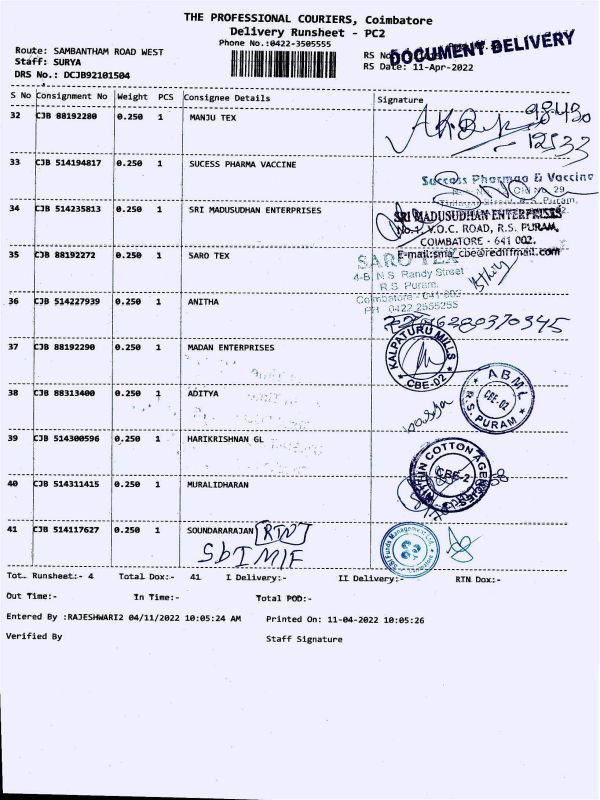 THE PROFESSIONAL COURIERS, Coimbatore
Delivery Runsheet - PC2
Phone No.:0422-3505555
DOCUMENT DELIVERY
Route: SAMBANTHAM ROAD WEST
RS No
Staff: SURYA
RS Date: 11-Apr-2022
DRS No.: DCJB92101504
S No Consignment No Weight PCS Consignee Details Signature
32 CJB 88192280 0.250 1 MANJU TEX
98430
12533
33 CJB 514194817 0.250 1 SUCESS PHARMA VACCINE
Success Pharmaa & Vaccine
34 CJB 514235813 0.250 1 SRI MADUSUDHAN ENTERPRISES
SRI MADUSUDHAN ENTERPRISES
No.1, V.O.C. ROAD, R.S. PURAM,
COIMBATORE - 641 002.
35 CJB 88192272 0.250 1 SARO TEX
E-mail:sma_cbe@rediffmail.com
SARO TEX
4-B, N.S. Randy Street
R.S. Puram,
Coimbatore - 641 002
PH 0422 2555255
36 CJB 514227939 0.250 1 ANITHA
6280370345
37 CJB 88192290 0.250 1 MADAN ENTERPRISES
KALPATURU MILLS
CBE-02
38 CJB 88313400 0.250 1 ADITYA
ABML
CBE-02
R.S. PURAM
39 CJB 514300596 0.250 1 HARIKRISHNAN GL
COTTON
CBE-2
40 CJB 514311415 0.250 1 MURALIDHARAN
41 CJB 514117627 0.250 1 SOUNDARARAJAN RTN
SBI MF
SBI Funds Management Ltd.
Tot. Runsheet:- 4 Total Dox:- 41 I Delivery:- II Delivery:- RTN Dox:-
Out Time:- In Time:- Total POD:-
Entered By :RAJESHWARI2 04/11/2022 10:05:24 AM Printed On: 11-04-2022 10:05:26
Verified By Staff Signature